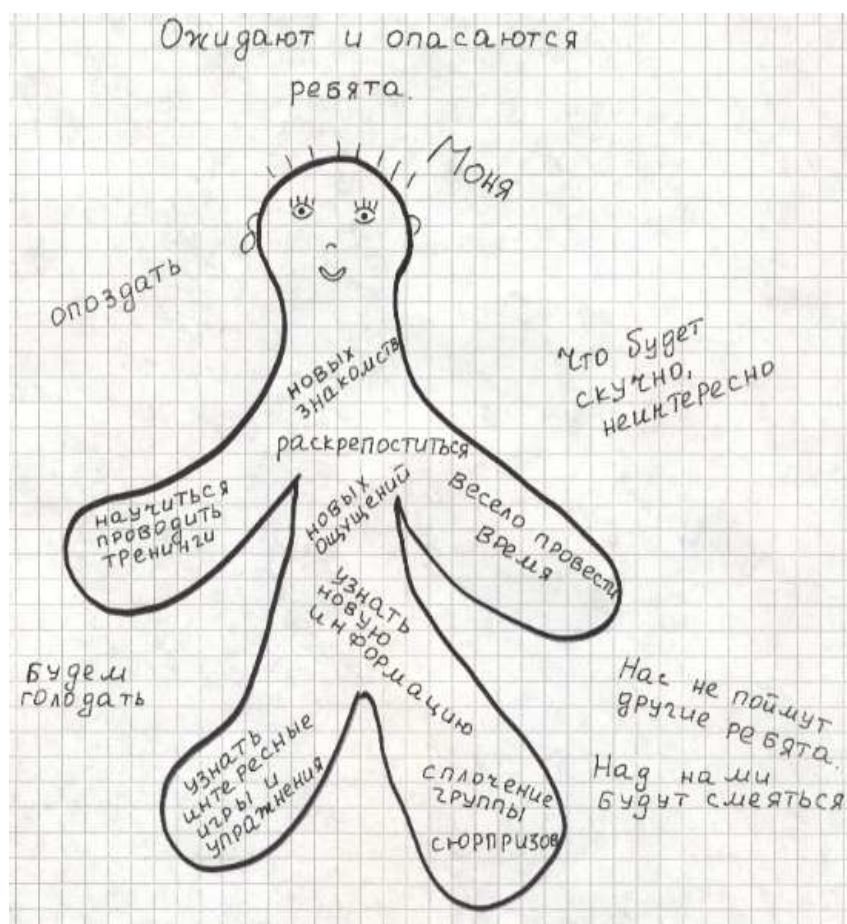 Ожидают и опасаются
ребята.
Моня
опоздать
Что будет
скучно,
неинтересно
новых
знакомств
раскрепоститься
научиться
проводить
тренинги
новых
ощущений
весело провести
время
узнать
новую
информацию
Будем
голодать
Нас не поймут
другие ребята.
узнать
интересные
игры и
упражнения
сплочение
группы
сюрпризов
Над нами
будут смеяться